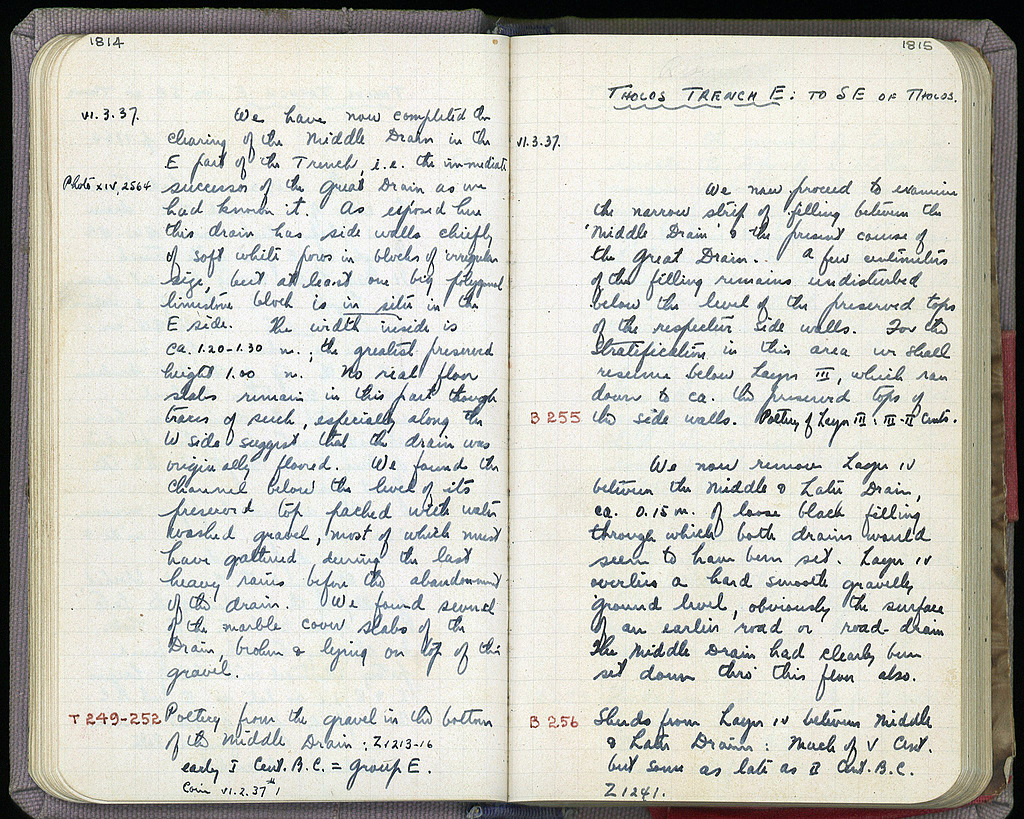 1814
VI.3.37. We have now completed the
clearing of the Middle Drain in the
E part of the Trench, i.e. the immediate
Photo XIV, 2564 successor of the Great Drain as we
had known it. As exposed here
this drain has side walls chiefly
of soft white poros in blocks of irregular
size, but at least one big polygonal
limestone block is in situ in the
E side. The width inside is
ca. 1.20-1.30 m.; the greatest preserved
height 1.00 m. No real floor
slabs remain in this part though
traces of such, especially along the
W side suggest that the drain was
originally floored. We found the
channel below the level of its
preserved top packed with water
washed gravel, most of which must
have gathered during the last
heavy rains before the abandonment
of the drain. We found several
of the marble cover slabs of the
Drain, broken & lying on top of this
gravel.
T 249-252 Pottery from the gravel in the bottom
of the Middle Drain: Z1213-16
early I Cent. B.C. = Group E.
Coin VI.2.37 #1
1815
THOLOS TRENCH E: TO SE OF THOLOS.
VI.3.37.
We now proceed to examine
the narrow strip of filling between the
'Middle Drain' & the present course of
the Great Drain. A few centimetres
of the filling remains undisturbed
below the level of the preserved tops
of the respective side walls. For the
Stratification in this area we shall
resume below Layer III, which ran
down to ca. the preserved tops of
B 255 the side walls. Pottery of Layer III: III-II Cents.
We now remove Layer IV
between the Middle & Later Drain,
ca. 0.15 m. of loose black filling
through which both drains would
seem to have been set. Layer IV
overlies a hard smooth gravelly
ground level, obviously the surface
of an earlier road or road-drain
The Middle Drain had clearly been
set down thro' this floor also.
B 256 Sherds from Layer IV between Middle
& Later Drains: Much of V Cent.
but some as late as II Cent. B.C.
Z1241.